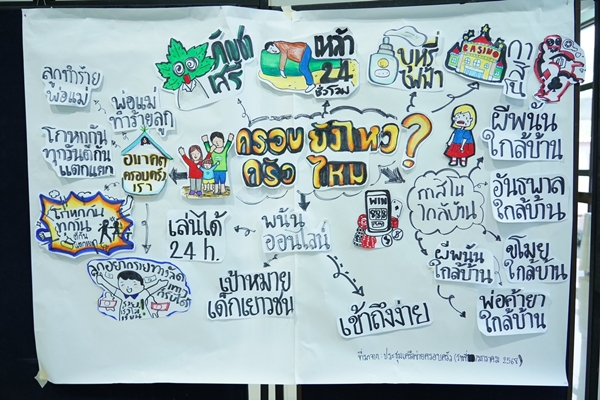 กัญชา
เสรี
เหล้า
24
ชั่วโมง
บุหรี่
ไฟฟ้า
CASINO
กา
สิ
โน
ลูกทำร้าย
พ่อแม่
พ่อแม่
ทำร้ายลูก
โกหกกัน
ทุกวันตีกัน
แตกแยก
อนาคต
ครอบครัว
เรา
ครอบ
ครัว
ยังไหว
ไหม
?
ผีพนัน
ใกล้บ้าน
กาสิโน
ใกล้บ้าน
อันธพาล
ใกล้บ้าน
โกหกกัน
ทุกวัน
ตีกัน
เล่นได้
24 h.
พนัน
ออนไลน์
WIN
ผีพนัน
ใกล้บ้าน
ขโมย
ใกล้บ้าน
เป้าหมาย
เด็กเยาวชน
เข้าถึงง่าย
พ่อค้ายา
ใกล้บ้าน